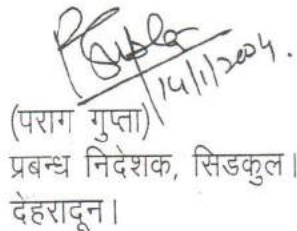 P Gupta
14/1/2004.
(पराग गुप्ता)
प्रबन्ध निदेशक, सिडकुल।
देहरादून।